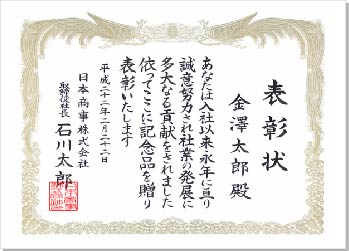 表彰状
金澤太郎殿
あなたは入社以来永年に亘り
誠意努力され社業の発展に
多大なる貢献をされました
依ってここに記念品を贈り
表彰いたします
平成二十二年二月二十二日
日本商事株式会社
取締役社長 石川太郎